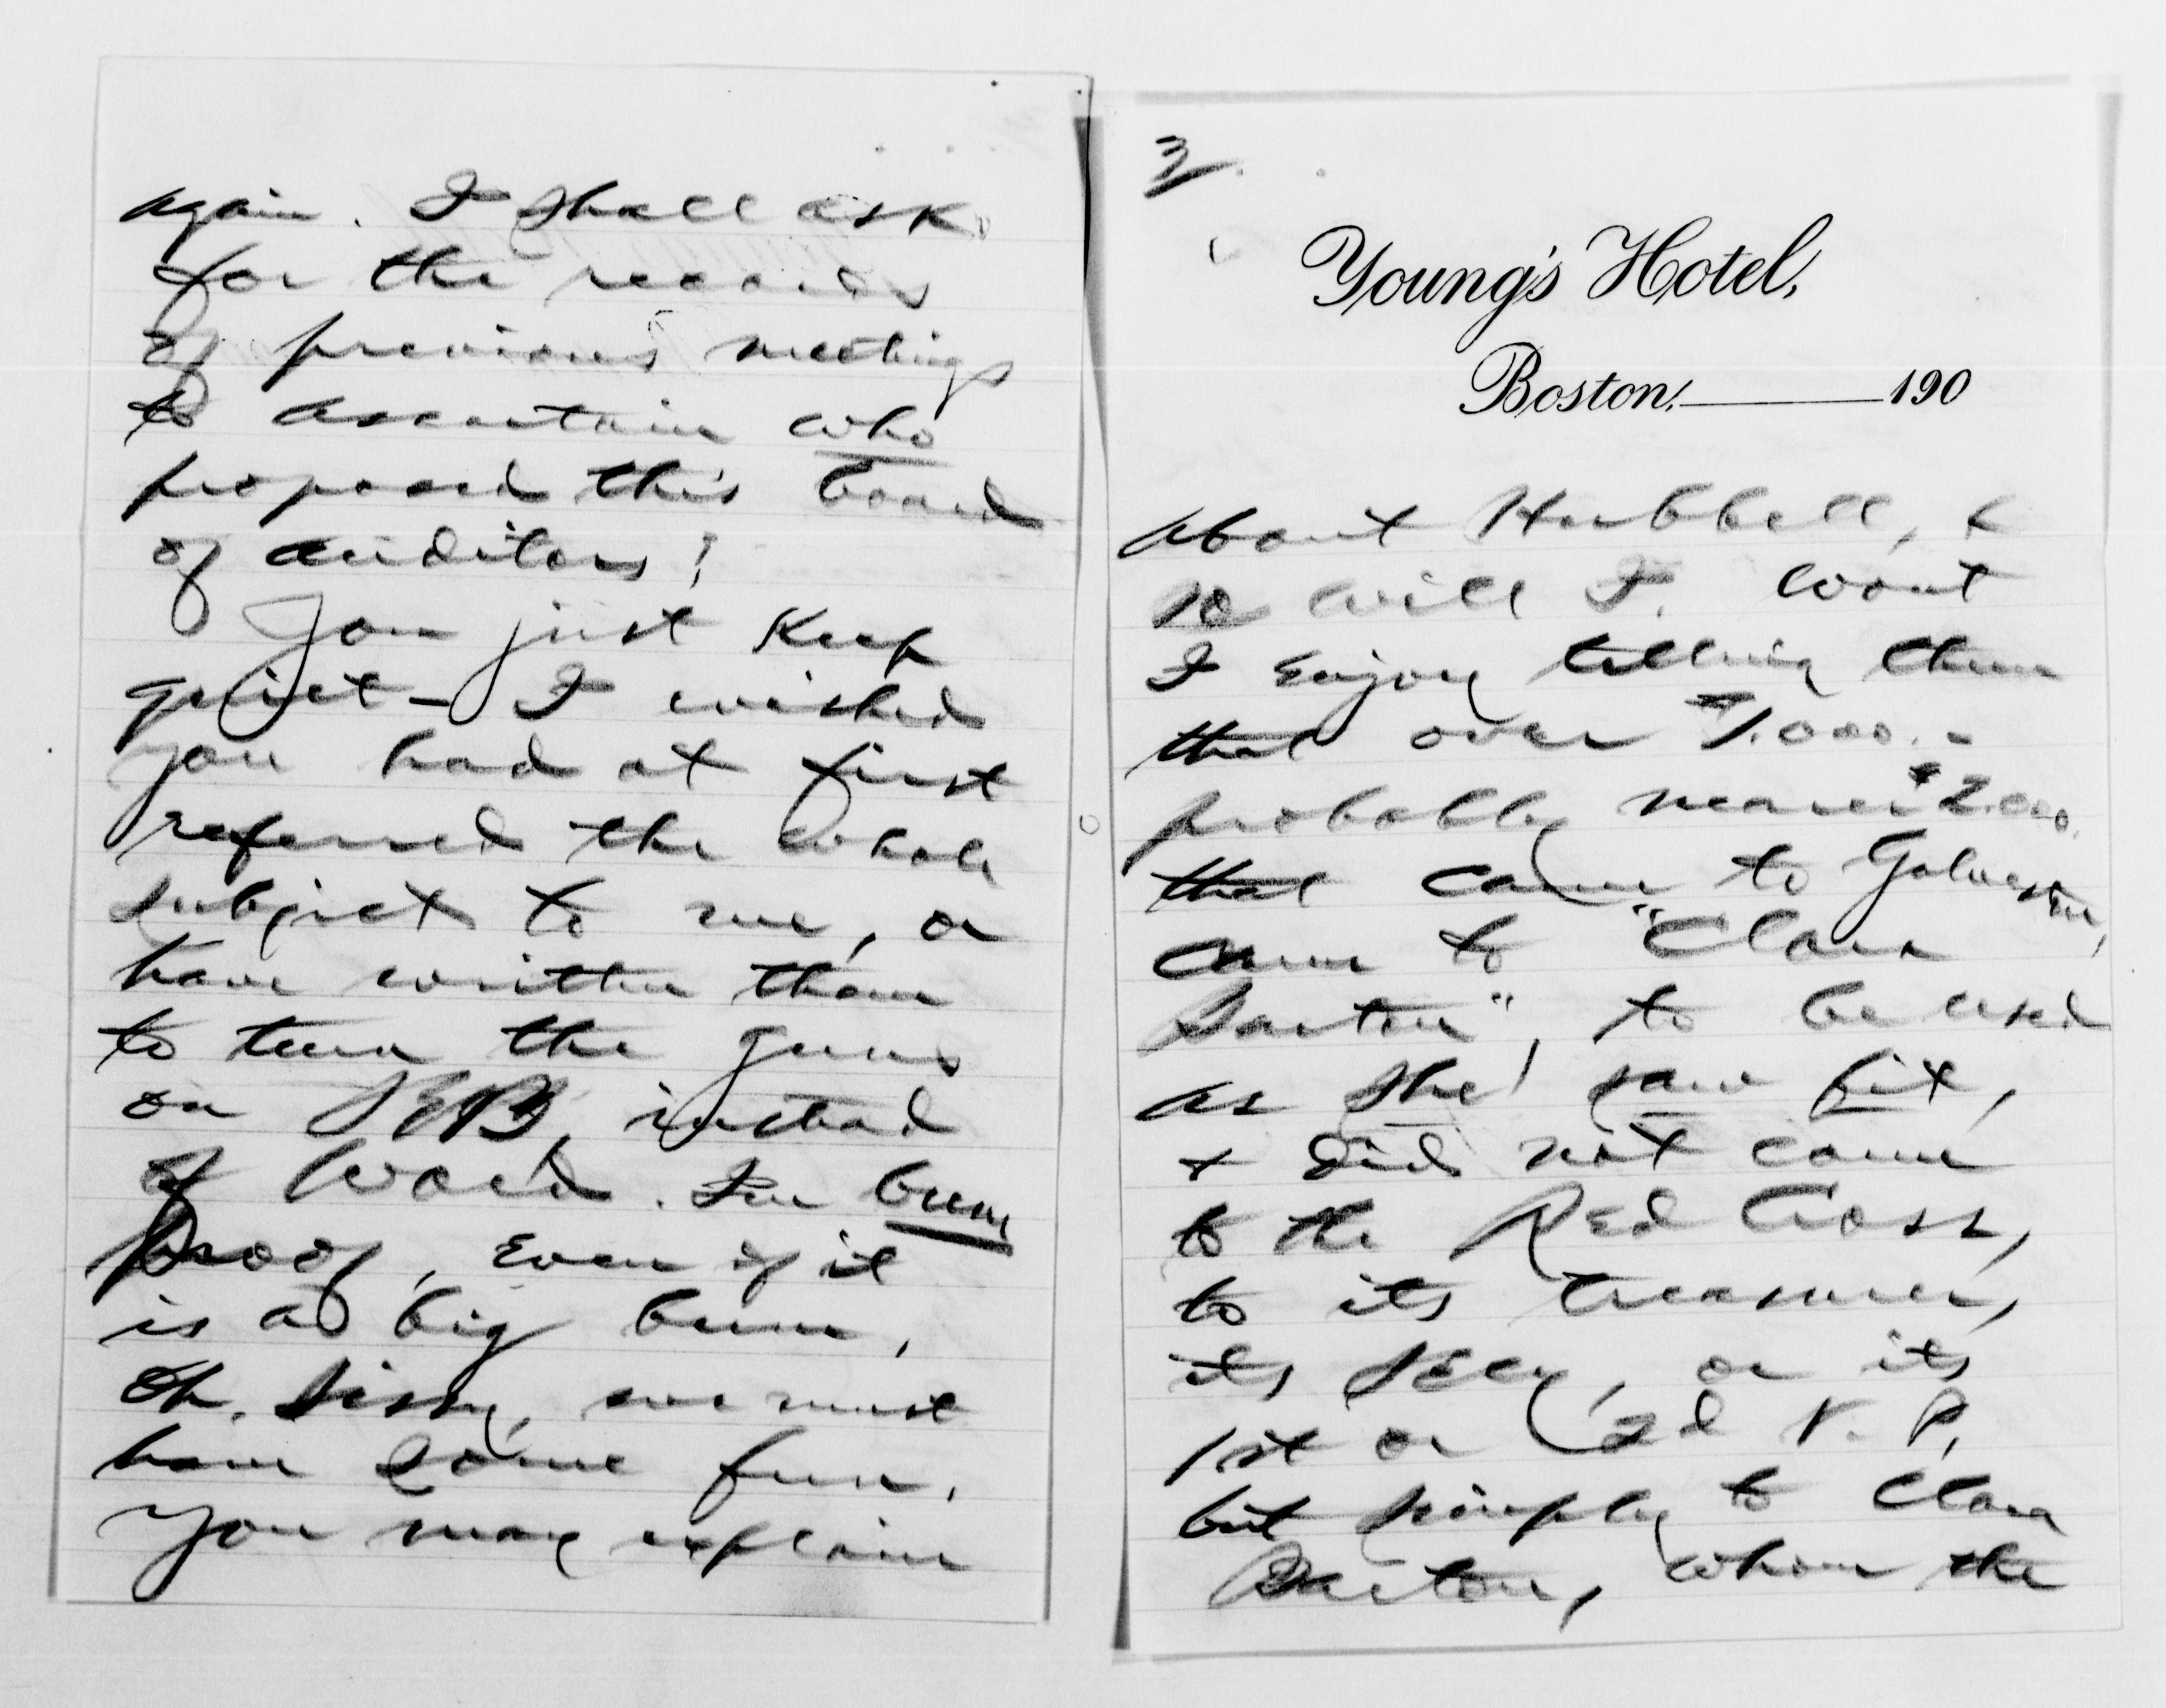 again. I shall ask
for the records
of previous meetings
to ascertain who
proposed this board
of auditors!
You just keep
quiet – I wished
you had at first
referred the whole
subject to me, or
have written them
to turn the guns
on SEB, instead
of Ward. I'm bum
proof, even if it
is a big bum,
Oh, Sissy, we must
have some fun.
You may explain
3/.
Young's Hotel,
Boston, 190
about Hubbell, &
so will I. Wont
I enjoy telling them
that over
probably nearer $2.000.
that came to Galveston,
came to "Clara
Barton", to be used
as she saw fit,
& did not come
to the Red Cross,
to its treasurer,
its Secy, or its
1st or 2d V. P.
but simply to Clara
Barton, whom the